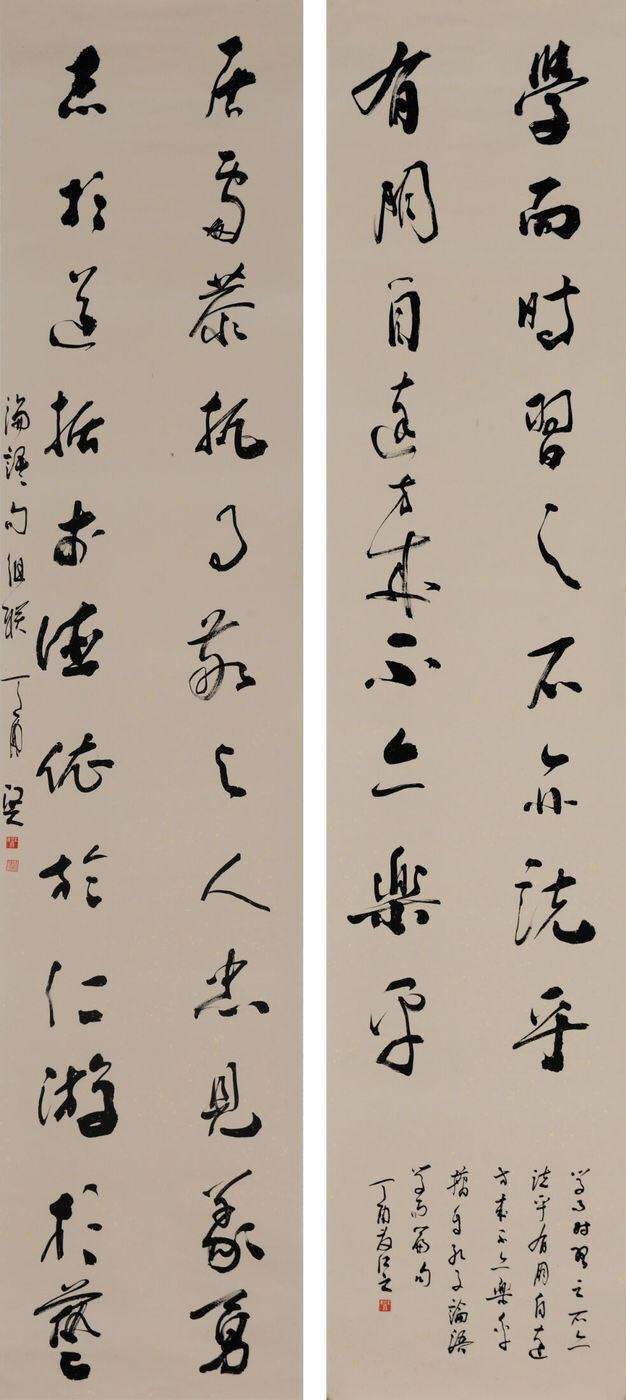 學而時習之不亦說乎
有朋自遠方來不亦樂乎
學而時習之不亦
說乎有朋自遠
方來不亦樂乎
摘自孔子論語
學而篇句
丁酉
居處恭執事敬与人忠見義勇
志於道據於德依於仁游於藝
論語句組联 丁酉